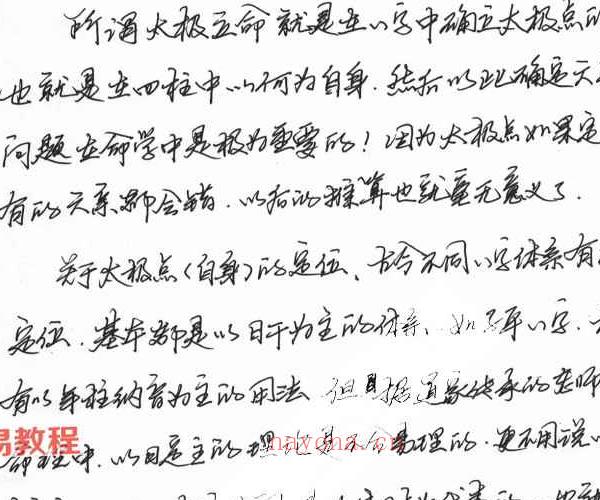 所谓太极立命就是在八字中确立太极点的
也就是在四柱中以何为自身.然后以此确定六
问题在命学中是极为重要的!因为太极点如果定
有的关系都会错.以后的推算也就毫无意义了.
关于太极点(自身)的定位、古今不同八字体系有
定位.基本都是以日干为主的体系、如 八字.
有以年柱纳音为主的用法 但据道家传承的
命理中.以日定主的理论是不合易理的.更不用说
易教程